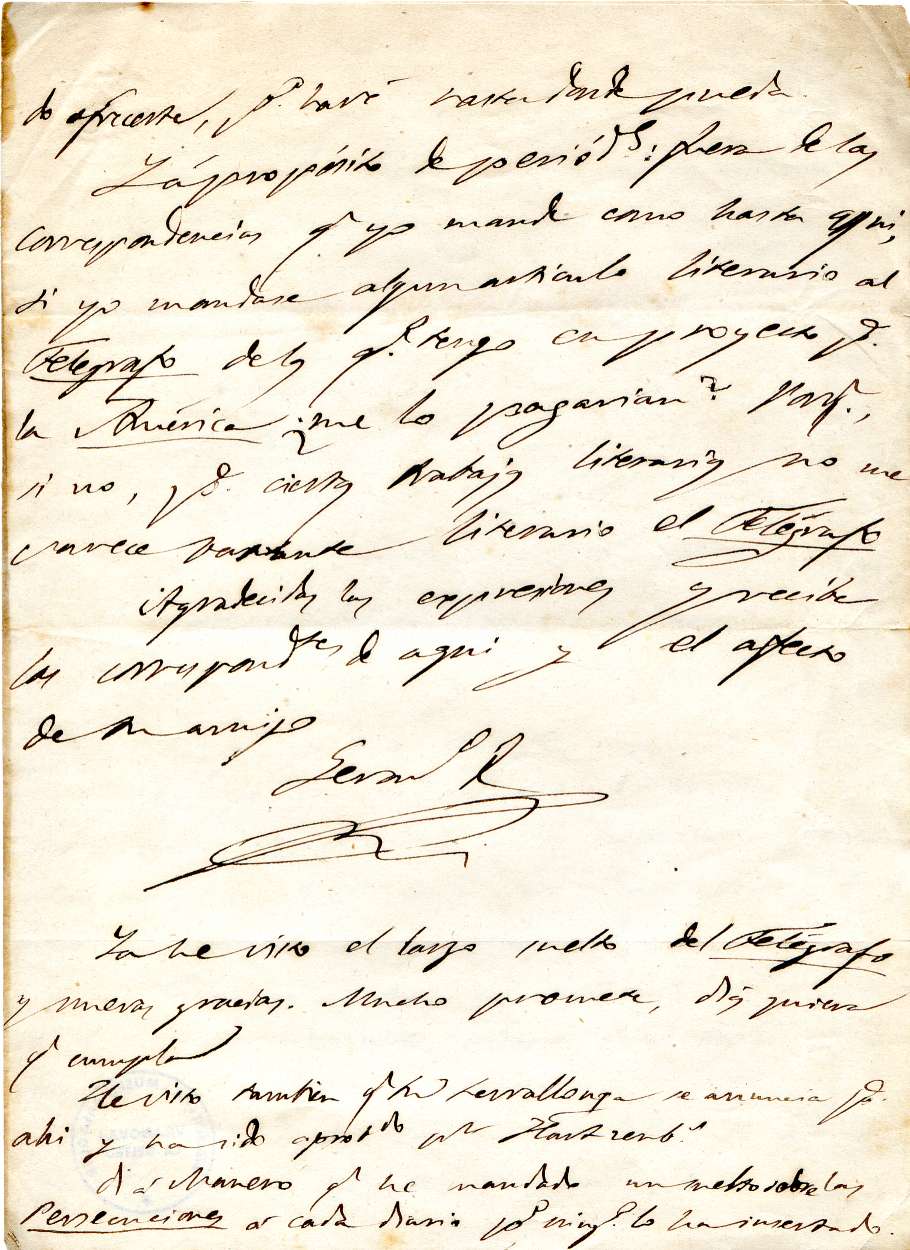 do ofrecerte, pº. haré hasta donde pueda.
Y á propósito de periód.s: fuera de las
correspondencias q.e yo mande como hasta aqui,
si yo mandase algun articulo literario al
Telégrafo de los q.e tengo en proyecto pª.
la América ¿me lo pagarian? Porq.e,
si no, pª. ciertos trabajos literarios no me
parece bastante literario el Telégrafo
Agradecidos las expresiones y recibe
las correspond.tes de aqui y el afecto
de tu amigo
Ya he visto el largo suelto del Telégrafo
y nuevas gracias. Mucho promete, dios quiera
q.e cumpla
He visto tambien q.e tu Serrallonga se anuncia pª.
ahi y ha sido aprob.do p.r Hartzenb.
di á Manero q.e he mandado un suelto sobre las
Persecuciones á cada diario pº. ning.º lo ha insertado.